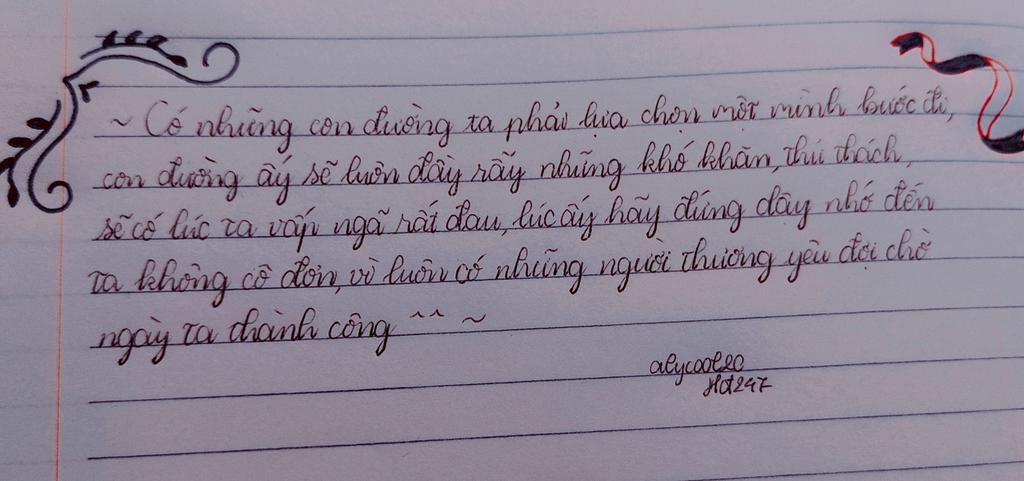 ~ Có những con đường ta phải lựa chọn một mình bước đi,
con đường ấy sẽ luôn đầy rẫy những khó khăn, thử thách,
sẽ có lúc ta vấp ngã rất đau, lúc ấy hãy đứng dậy nhớ đến
ta không cô đơn, vì luôn có những người thương yêu đợi chờ
ngày ta thành công ^^ ~
alycool20
Hd247